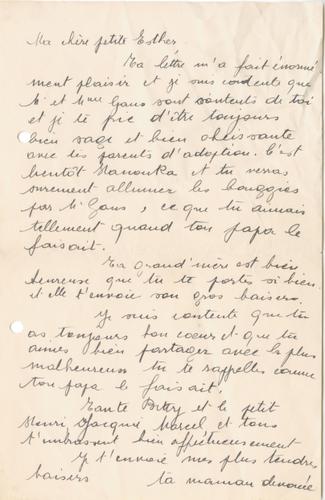 Ma chère petite Esther.
Ta lettre m'a fait énormé
ment plaisir et je suis contente que
Mr et Mme Gans sont contents de toi
et je te prie d'être toujours
bien sage et bien obeissante
avec tes parents d'adoption. C'est
bientôt Hanouka et tu verras
surement allumer les bouggies
par Mr Gans, ce que tu aimais
tellement quand ton papa le
faisait.
Ta grand'mère est bien
heureuse que tu te portes si bien
et elle t'envoie son gros baisers.
Je suis contente que tu
as toujours bon coeur et que tu
aimes bien partager avec les plus
malheureux tu te rappelles comme
ton papa le faisait.
Tante Betty et le petit
Henri, Jacques Marcel et tous
t'embrassent bien affectueusement
Je t'envoie mes plus tendres
baisers ta maman devouée